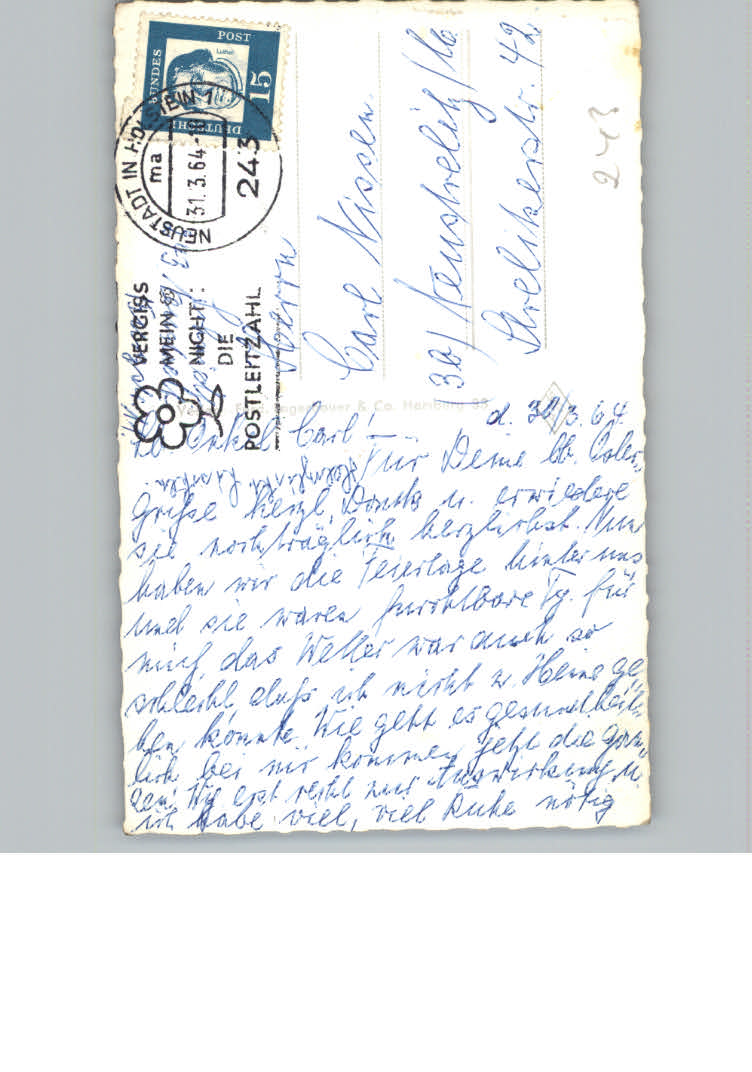 DEUTSCHE
BUNDES
POST
15
Luther
NEUSTADT IN HOLSTEIN 1
ma
31.3.64-
243
VERGISS
MEIN
NICHT:
DIE
POSTLEITZAHL
Herrn
Carl Nissen.
36/ Neustrelitz/
Strelitzerstr. 42
243
& Co. Hamburg
d. 30/3.64.
Lb. Onkel Carl!
Für Deine lb. Oster-
grüße herzl. Dank u. erwiedere
sie nachträglich herzlichst. Nun
haben wir die Feiertage hinter uns
und sie waren furchtbare Tg. für
mich, das Wetter war auch so
schlecht, daß ich nicht z. Heino ge-
hen konnte. Wie geht es gesundheit-
lich bei mir kommen jetzt die
erst recht zur Auswirkung u.
ich habe viel, viel Ruhe nötig